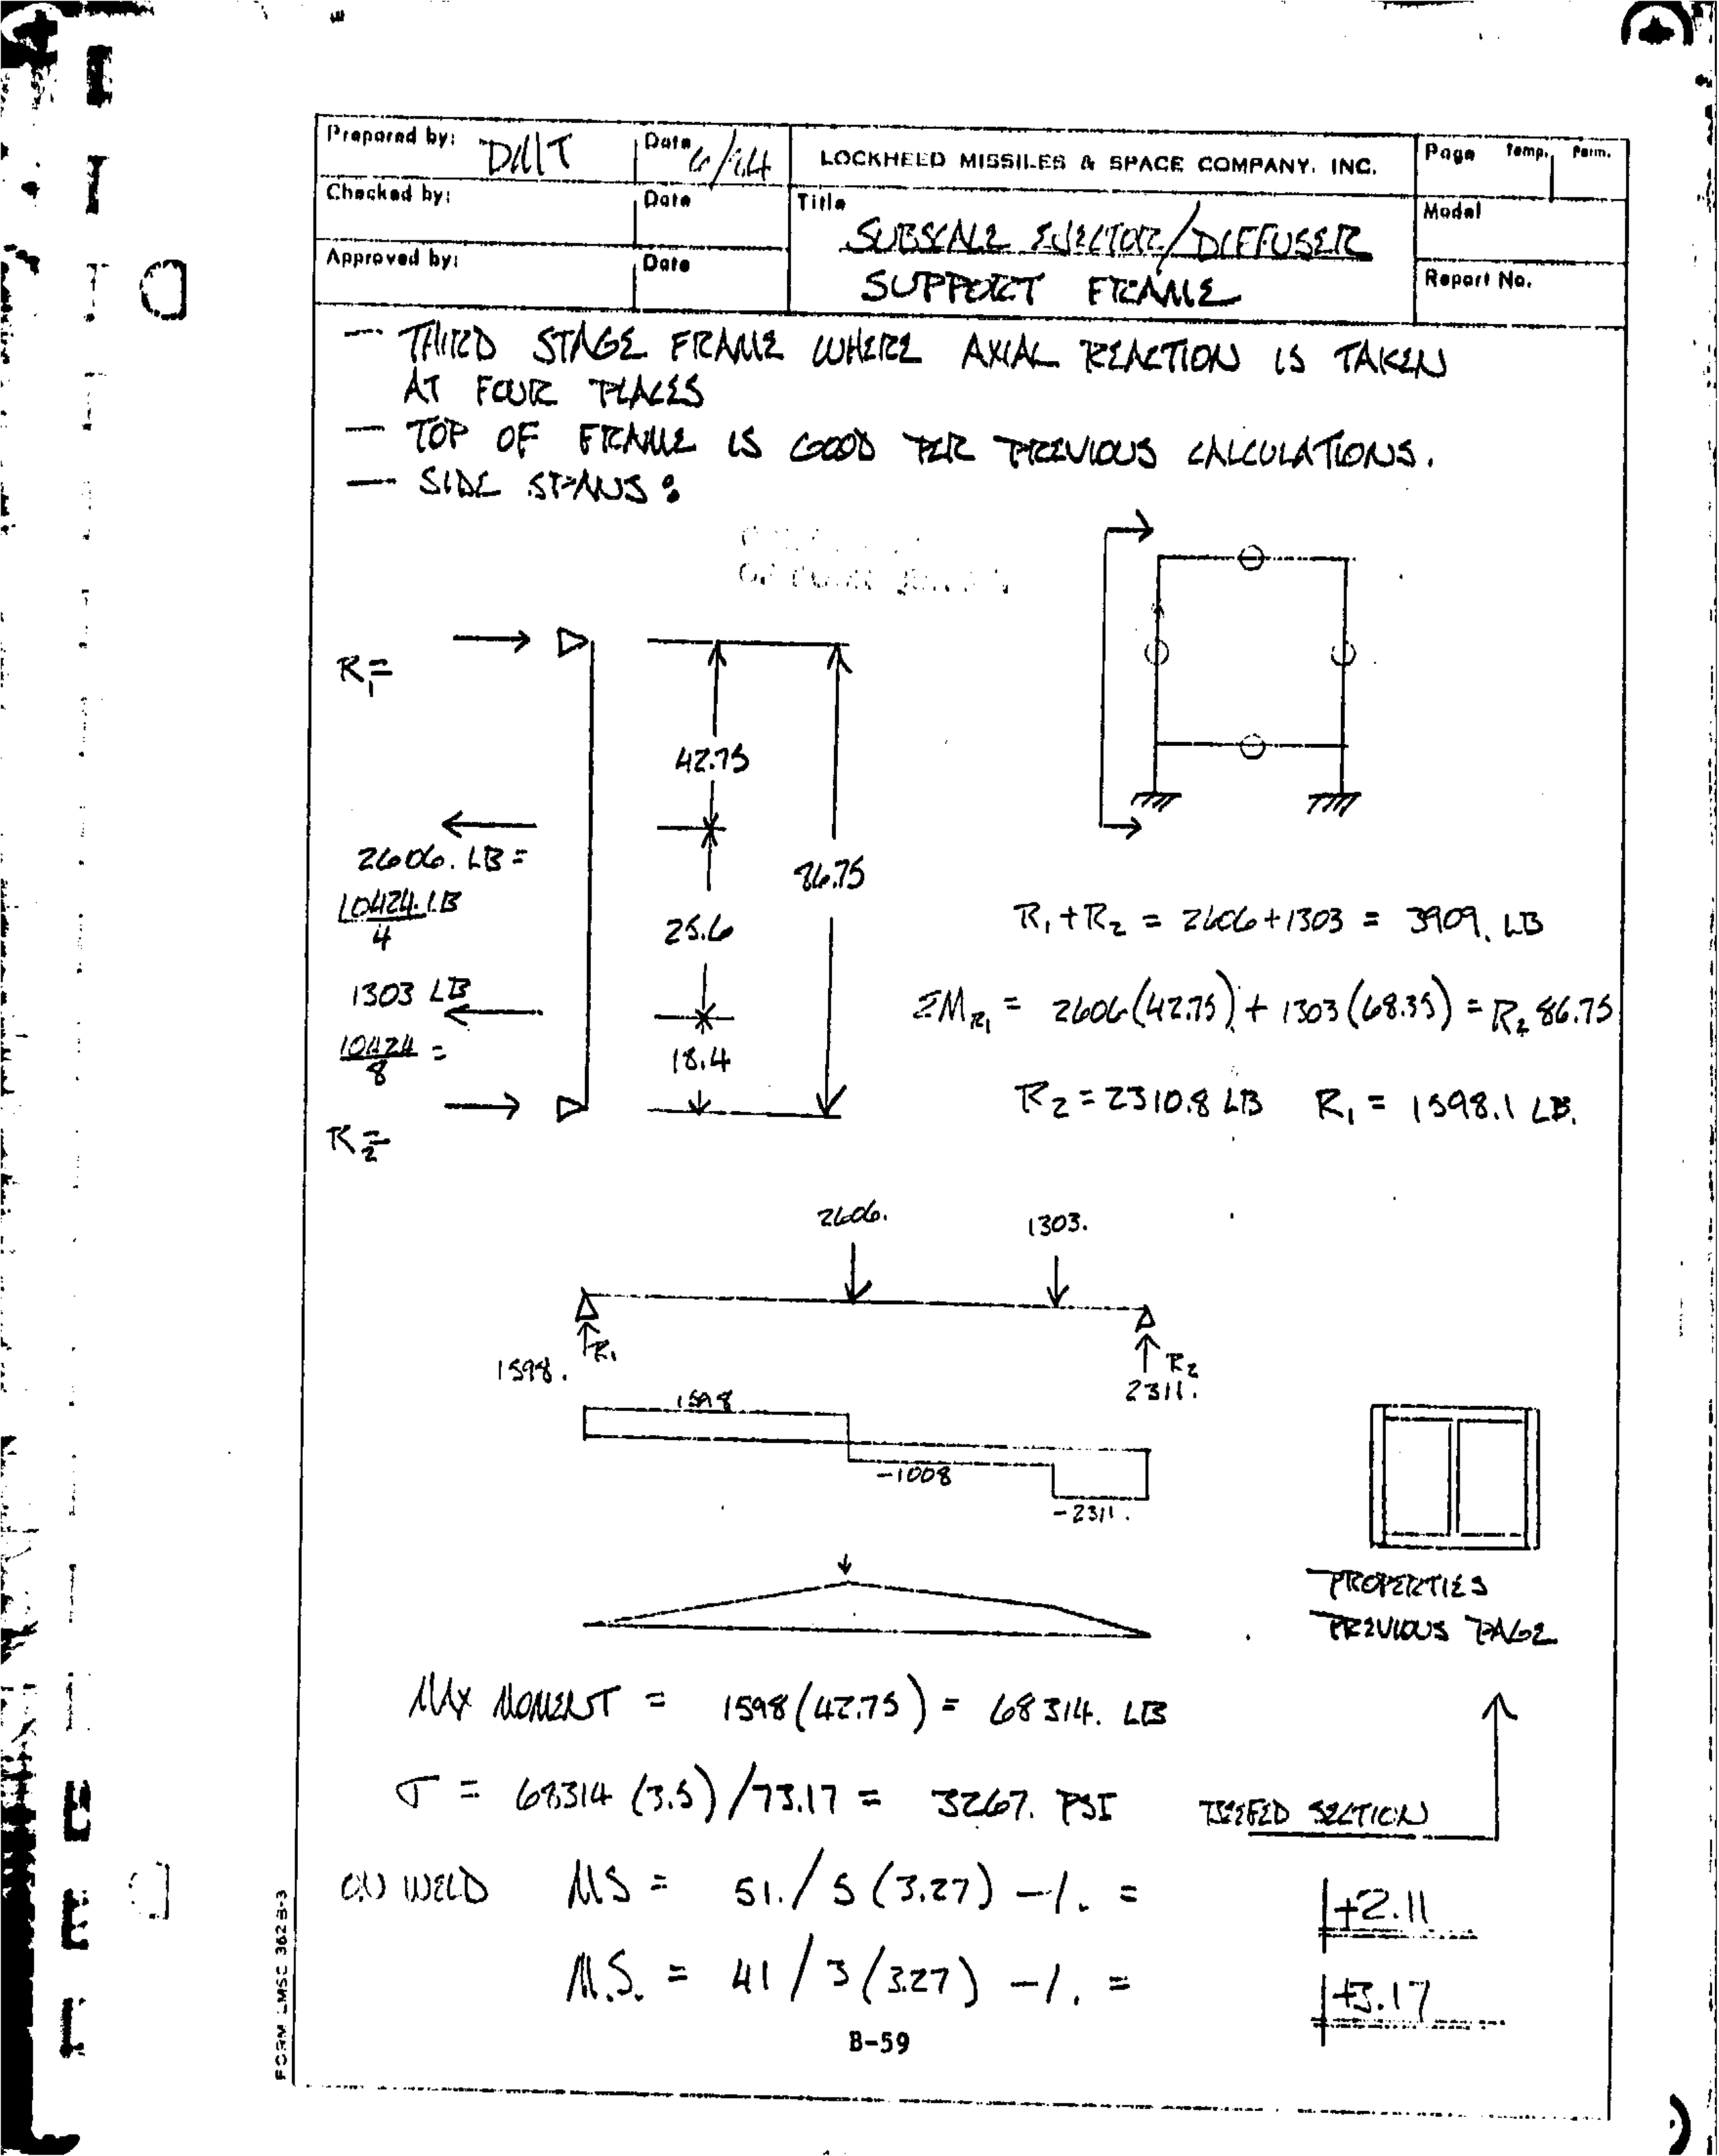 Prepared by: DMT Date 6/84 LOCKHEED MISSILES & SPACE COMPANY, INC. Page Temp. Perm.
Checked by: Date Title SUBSCALE EJECTOR/DIFFUSER Model
Approved by: Date SUPPORT FRAME Report No.
— THIRD STAGE FRAME WHERE AXIAL REACTION IS TAKEN
AT FOUR PLACES
— TOP OF FRAME IS GOOD PER PREVIOUS CALCULATIONS.
— SIDE SPANS:
R1=
42.75
2606. LB =
10424. LB
4
86.75
25.6
1303 LB
10424 =
8
18.4
R2=
R1 + R2 = 2606 + 1303 = 3909. LB
ΣM R1 = 2606(42.75) + 1303(68.35) = R2 86.75
R2 = 2310.8 LB R1 = 1598.1 LB.
2606. 1303.
R1 R2
1598. 2311.
1598
-1008
-2311.
PROPERTIES
PREVIOUS PAGE
MAX MOMENT = 1598(42.75) = 68314. LB
σ = 68314 (3.5)/73.17 = 3267. PSI
BEEFED SECTION
ON WELD MS = 51./5(3.27) -1. = +2.11
M.S. = 41/3(3.27) -1. = +3.17
B-59
FORM LMSC 362B-3